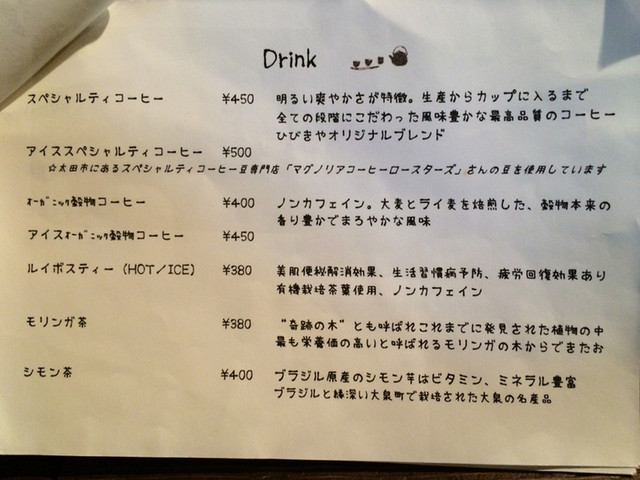 Drink
スペシャルティコーヒー ¥450 明るい爽やかさが特徴。生産からカップに入るまで
全ての段階にこだわった風味豊かな最高品質のコーヒー
ひびきやオリジナルブレンド
アイススペシャルティコーヒー ¥500
☆太田市にあるスペシャルティコーヒー豆専門店「マグノリアコーヒーロースターズ」さんの豆を使用しています
オーガニック穀物コーヒー ¥400 ノンカフェイン。大麦とライ麦を焙煎した、穀物本来の
香り豊かでまろやかな風味
アイスオーガニック穀物コーヒー ¥450
ルイボスティー(HOT/ICE) ¥380 美肌便秘解消効果、生活習慣病予防、疲労回復効果あり
有機栽培茶葉使用、ノンカフェイン
モリンガ茶 ¥380 “奇跡の木”とも呼ばれこれまでに発見された植物の中
最も栄養価の高いと呼ばれるモリンガの木からできたお
シモン茶 ¥400 ブラジル原産のシモン芋はビタミン、ミネラル豊富
ブラジルと縁深い大泉町で栽培された大泉の名産品